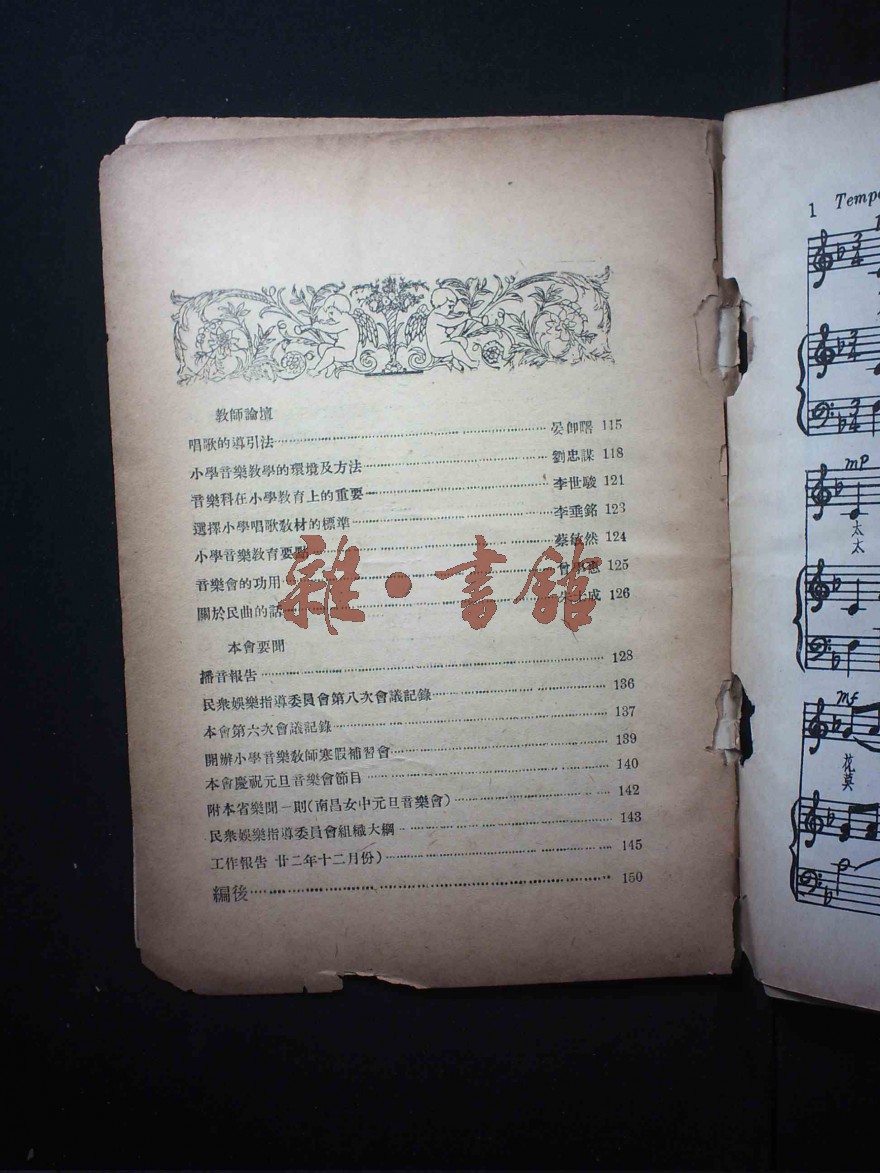 教師論壇
唱歌的導引法 115
小學音樂教學的環境及方法 劉忠謀 118
音樂科在小學教育上的重要 李世駿 121
選擇小學唱歌教材的標準 李垂銘 123
小學音樂教育要點 蔡敏然 124
音樂會的功用 125
關於民曲的話 126
本會要聞
播音報告 128
民衆娛樂指導委員會第八次會議記錄 136
本會第六次會議記錄 137
開辦小學音樂教師寒假補習會 139
本會慶祝元旦音樂會節目 140
附本省樂聞一則(南昌女中元旦音樂會) 142
民衆娛樂指導委員會組織大綱 143
工作報告 廿二年十二月份) 145
編後 150
雜·書館
1 Temp
mp
太
太
mf
花
莫